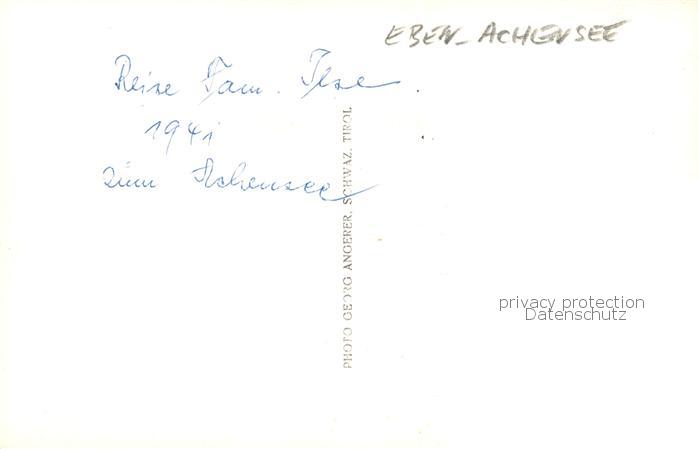 EBEN-ACHENSEE
Reise Fam. Ilse
1941
zum Achensee
PHOTO GEORG ANGERER, SCHWAZ, TIROL
privacy protection
Datenschutz